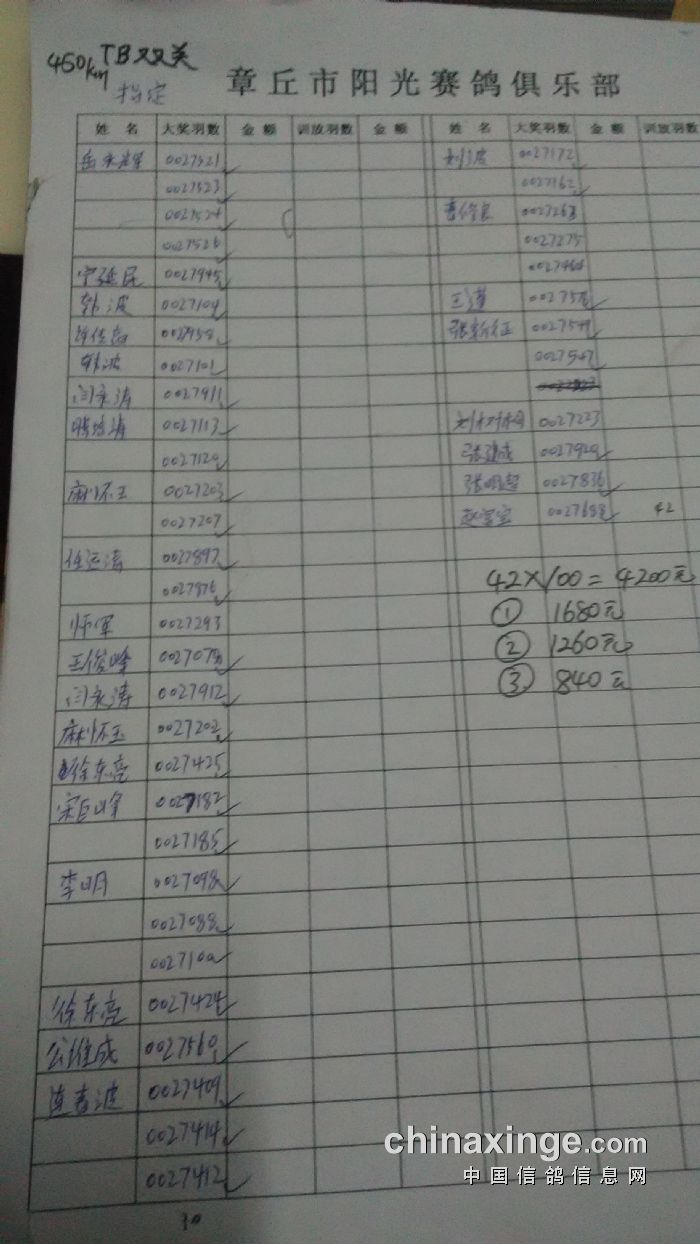 450km TB双关
指定
章丘市阳光赛鸽俱乐部
姓名 大奖羽数 金额 训放羽数 金额 姓名 大奖羽数 金额 训放羽数
0027521
0027523
0027524
0027526
0027945
韩波 0027104
0027958
韩波 0027101
闫永涛 0027911
0027113
0027120
麻怀玉 0027203
0027207
任运涛 0027897
0027876
师军 0027293
王俊峰
闫永涛 0027912
麻怀玉 0027202
徐东亮 0027425
宋巨峰 0027182
0027185
李明 0027098
0027088
002710
徐东亮 0027424
公维成 0027560
连春波 0027409
0027414
0027412
30
刘波 0027172
0027162
0027263
0027275
王莲
张新征 0027549
0027547
刘树相 0027223
张建成 0027920
张明超 0027836
赵宝宝 0027688 42
42×100=4200元
① 1680元
② 1260元
③ 840元
chinaxinge.com
中国信鸽信息网